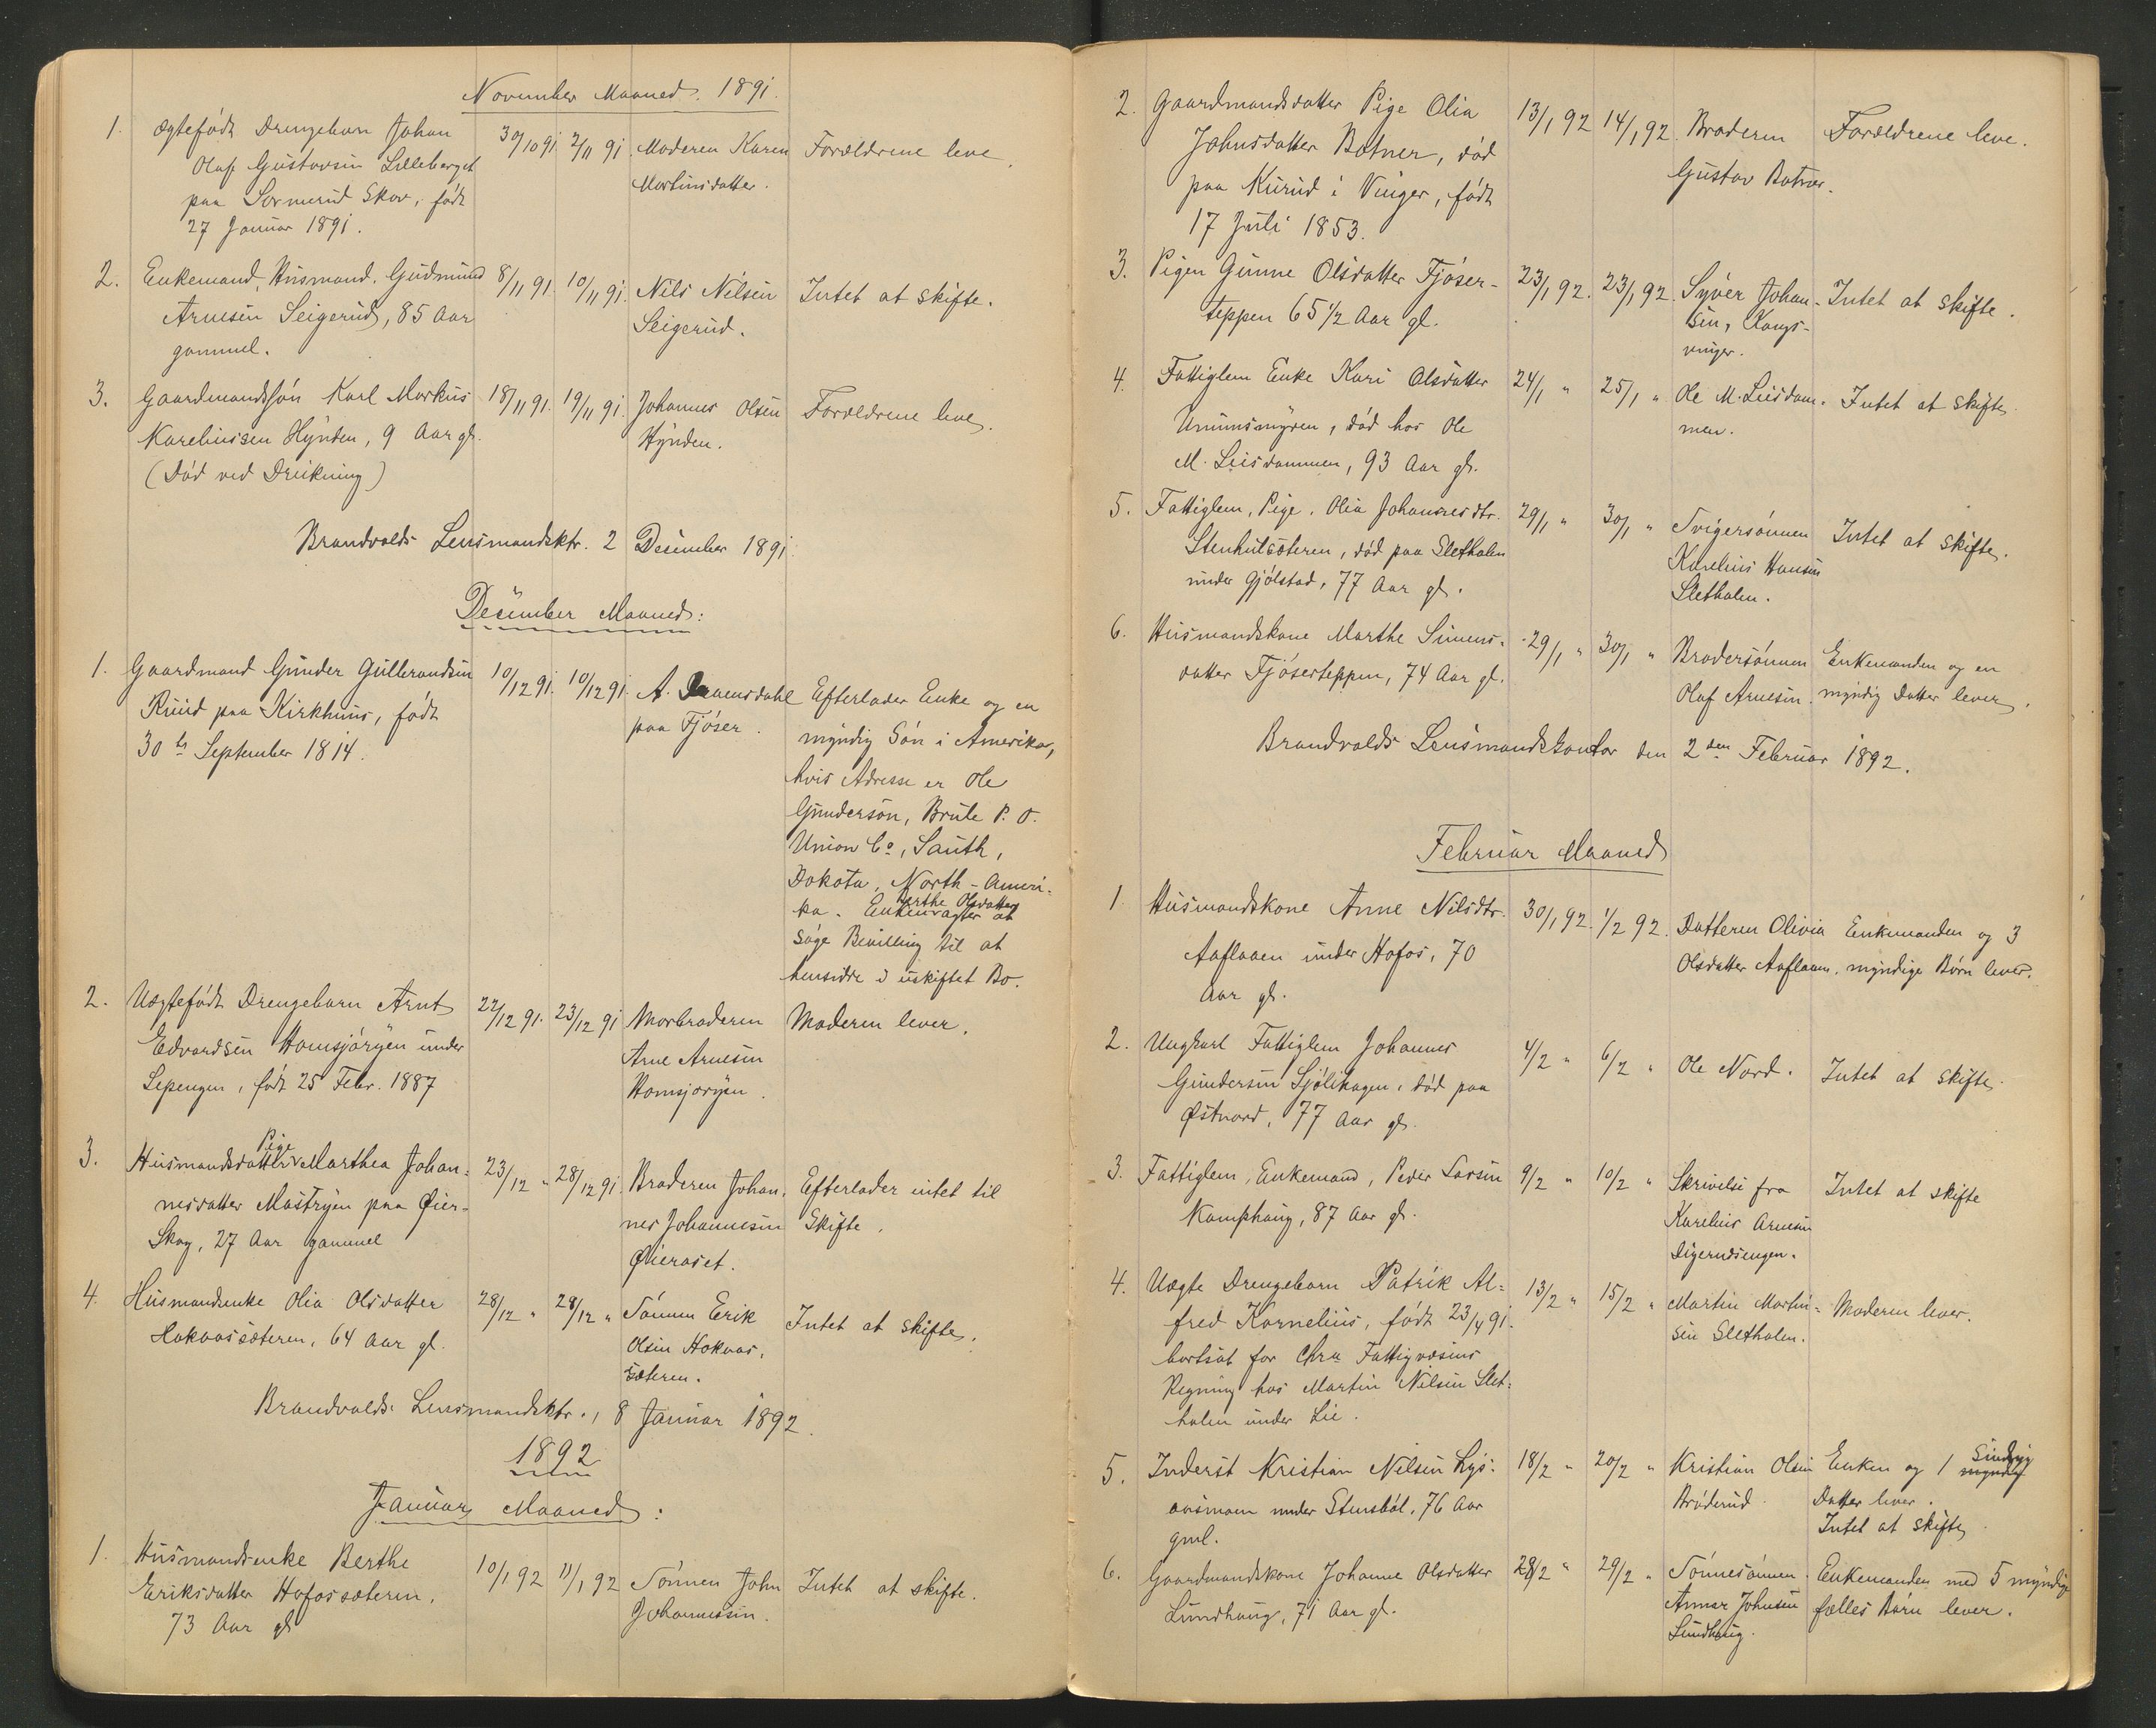 November Maaned. 1891.
1. Ægtefødt Drengebarn Johan 30/10 91. 2/11 91. Moderen Karen Forældrene leve.
Olaf Gustavsen Lilleberget Martinsdatter.
paa Sormerud Skov, født
27 Januar 1891.
2. Enkemand, Husmand. Gudmund 8/11 91. 10/11 91. Nils Nilsen Intet at skifte.
Arnesen Seigerud, 85 Aar Seigerud.
gammel.
3. Gaardmandssøn Karl Markus 18/11 91. 19/11 91. Johannes Olsen Forældrene leve.
Kareliussen Hynden, 9 Aar gl. Hynden.
(Død ved Drukning)
Brandvolds Lensmandsktr. 2 Desember 1891.
December Maaned:
1. Gaardmand Gunder Gulbrandsen 10/12 91. 10/12 91. A. Efterlader Enke og en
Ruud paa Kirkhuus, født paa Fjøser. myndig Søn i Amerika,
30te September 1814. hvis Adresse er Ole
Gunderson, Brule P. O.
Union Co, South,
Dakota, North-Ameri-
ka. Enken Berthe Olsdatter agter at
søge Bevilling til at
hensidde i uskiftet Bo.
2. Uægtefødt Drengebarn Arnt 22/12 91. 23/12 91 Morbroderen Moderen lever.
Edvardsen Homsjøryen under Arne Arnesen
Sepengen, født 25 Febr. 1887 Homsjøryen.
3. Husmandsdatter Pige Marthea Johan- 23/12 " 28/12 91. Broderen Johan- Efterlader intet til
nesdatter Mastryen paa Øier- nes Johannesen Skifte.
Skog, 27 Aar gammel Øieraset.
4. Husmandsenke Olia Olsdatter 28/12 " 28/12 " Sønnen Erik Intet at skifte.
Hokaassæteren, 64 Aar gl. Olsen Hokaas-
sæteren.
Brandvolds Lensmandsktr., 8 Januar 1892.
1892
Januar Maaned:
1. Husmandsenke Berthe 10/1 92 11/1 92 Sønnen John Intet at skifte.
Eriksdatter Hofossæteren, Johannessen.
73 Aar gl
2. Gaardmandsdatter Pige Olia 13/1 92 14/1 92. Broderen Forældrene leve.
Johnsdatter Botner, død Gustav Botner.
paa Kurud i Vinger, født
17 Juli 1853.
3. Pigen Gunne Olsdatter Fjøser- 23/1 92. 23/1 92. Syver Johan- Intet at skifte.
teppen 65 1/2 Aar gl. sen, Kongs-
vinger.
4. Fattiglem Enke Kari Olsdatter 24/1 " 25/1 " Ole M. Liisdam- Intet at skifte.
død hos Ole men.
M. Liisdammen, 93 Aar gl.
5. Fattiglem, Pige. Olia Johannesdtr. 29/1 " 30/1 " Svigersønnen Intet at skifte.
død paa Slethalen Karelius Hansen
under Gjølstad, 77 Aar gl. Slethalen.
6. Husmandskone Marthe Simens- 29/1 " 30/1 " Brodersønnen Enkemanden og en
datter Fjøserteppen, 74 Aar gl. Olaf Arnesen. myndig Datter lever.
Brandvolds Lensmandskontor den 2den Februar 1892.
Februar Maaned
1 Husmandskone Anne Nilsdtr. 30/1 92. 1/2 92. Datteren Olivia Enkemanden og 3
Aaflaaen under Hofos, 70 Olsdatter Aaflaaen. myndige Børn lever.
Aar gl.
2. Ungkarl Fattiglem Johannes 4/2 " 6/2 " Ole Nord. Intet at skifte.
Gundersen Sjølihagen, død paa
Østnord, 77 Aar gl.
3. Fattiglem, Enkemand, Peder Larsen 9/2 " 10/2 " Skrivelse fra Intet at skifte
Kamphaug, 87 Aar gl. Karelius Arnesen
Digerudsengen.
4. Uægte Drengebarn Patrik Al- 13/2 " 15/2 " Martin Martin- Moderen lever.
fred Kornelius, født 23/4 91. sen Slethalen.
bortsat for Chra Fattigvæsens
Regning hos Martin Nilsen Slet-
halen under Lie.
5. Inderst Kristian Nilsen Lys- 18/2 " 20/2 " Kristian Olsen Enken og 1 sindsyg
aasmoen under Stensbøl, 76 Aar Brøderud Datter lever.
gml. Intet at skifte.
6. Gaardmandskone Johanne Olsdatter 28/2 " 29/2 " Sønnesønnen Enkemanden med 5 myndige
Lundhaug, 71 Aar gl. Annar Johnsen fælles Børn lever.
Lundhaug.